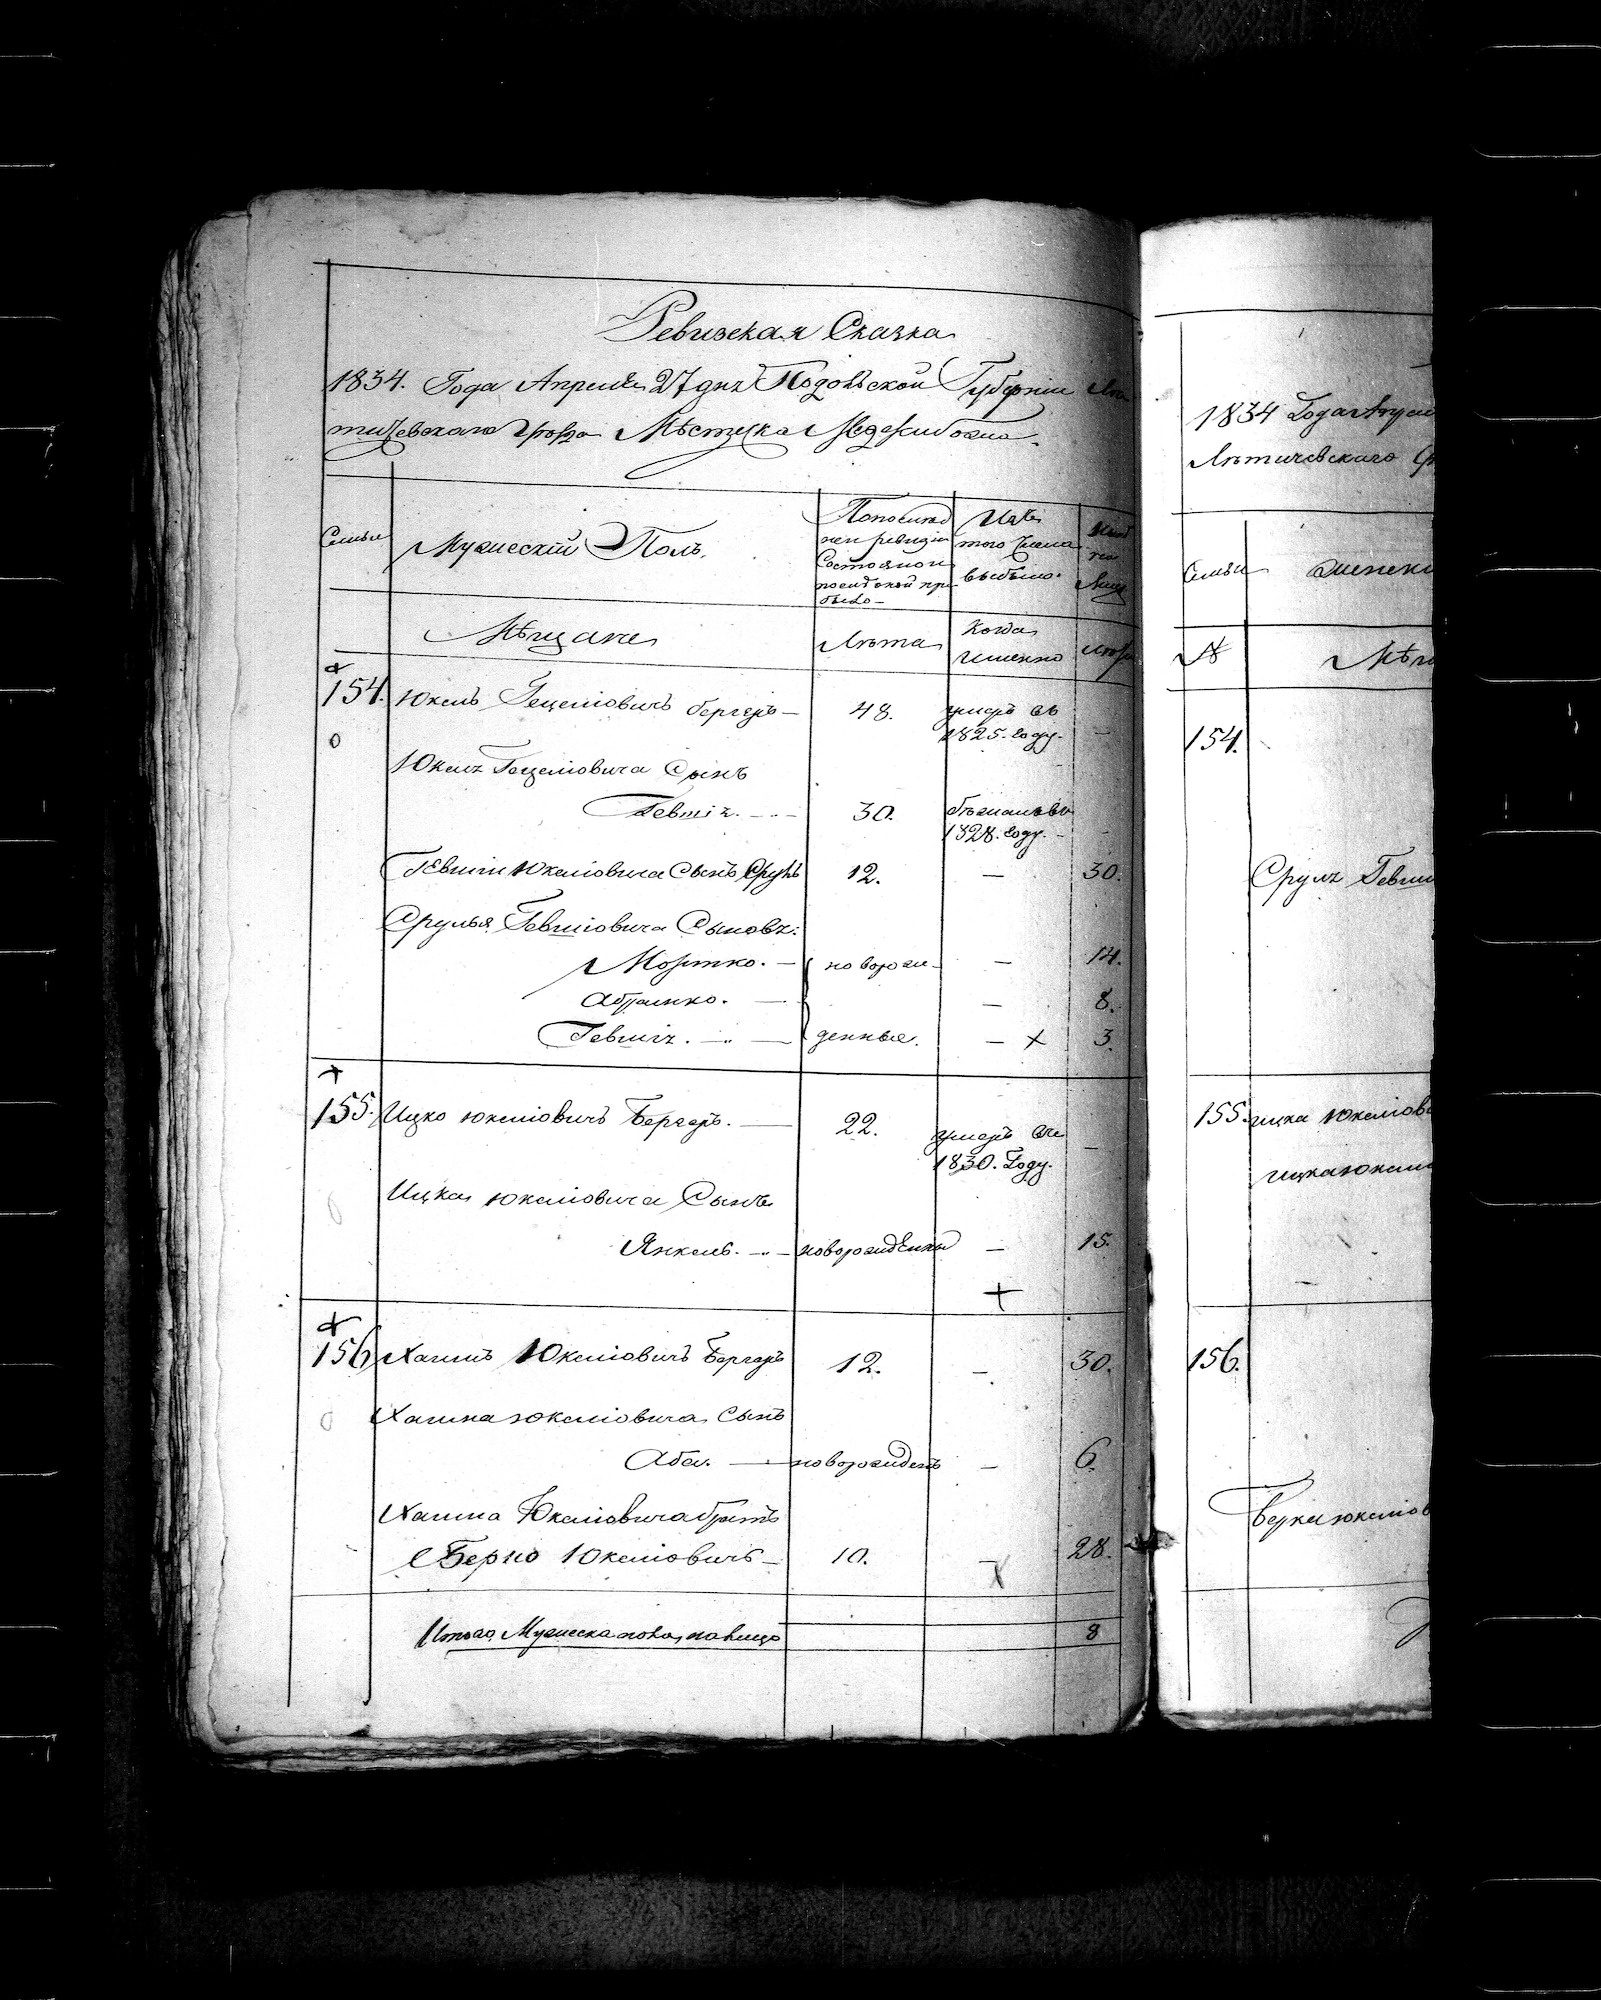 Ревизская Сказка
1834. Года Апреля 27 дня Подольской Губернии Ле
тичевского Уѣзда Мѣстечка Меджибожа.
Семьи
Мужеский Полъ.
По последней
ревизии
Состояло и
после оной при
было
Изъ
того числа
выбыло.
Ныне
на
Лицо
Мѣщане
Лѣта
Когда
именно
Лѣта
154.
Юкель Гецелiовичъ Бергеръ —
48.
умеръ въ
1825. году.
—
Юкеля Гецелiовича Сынъ
Гевшiя. —
30.
бежалъ въ
1828. году. —
Гевшiи Юкелiовича Сынъ Срулъ
12.
—
30.
Срулья Гевшiовича Сыновья:
Мортко. —
новорож—
—
14.
Абрамко. —
—
8.
Гевшiя. —
денные.
— x
3.
155.
Ицко Юкелiовичъ Бергеръ. —
22.
умеръ въ
1830. Году.
—
Ицка Юкелiовича Сынъ
Янкель. —
новорожденный
—
15.
+
156
Хаимъ Юкелiовичъ Бергеръ
12.
—
30.
Хаима Юкелiовича Сынъ
Аба. —
новорожденъ
—
6.
Хаима Юкелiовича братъ
Берко Юкелiовичъ —
10.
— x
28.
Итого Мужеска пола на лицо
8
1834 Года Апрел
Лѣтичевскаго
Семьи
Женск
№
Мѣщ
154.
Срула Гевши
155.
Ицка Юкелiов
Ицка Юкелi
156.
Берка Юкелiов